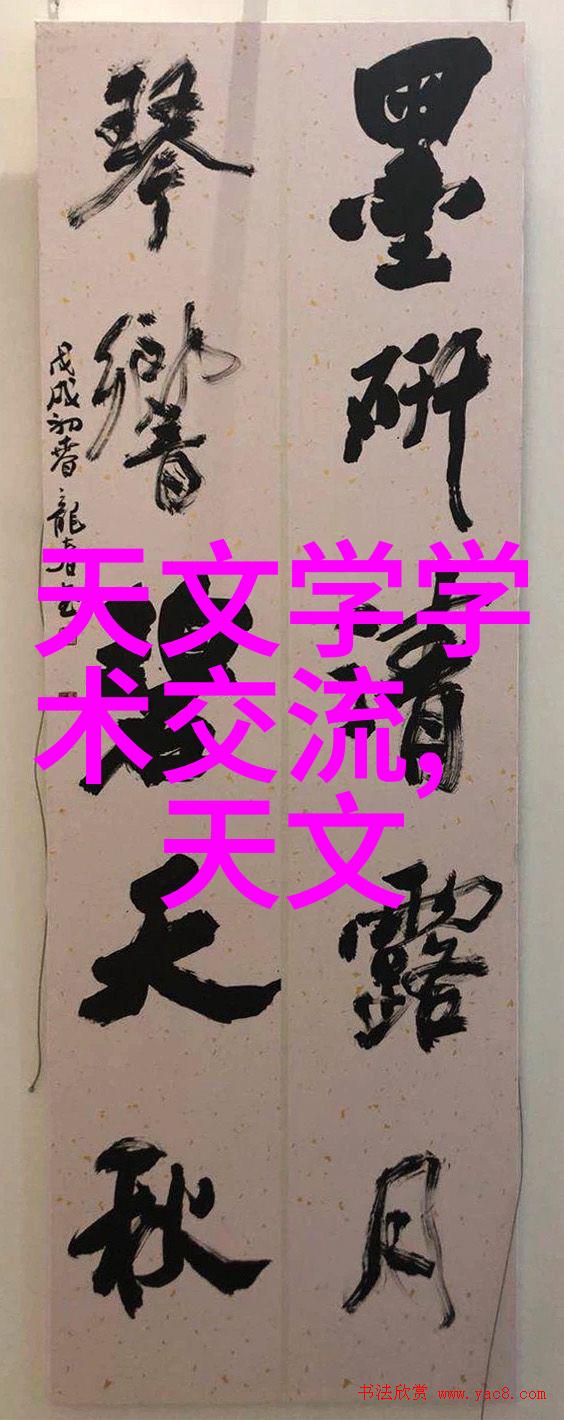 墨研清露月
琴響碧天秋
戊戌初春
天文学学
术交流,
天文
书法欣赏 www.yac8.com